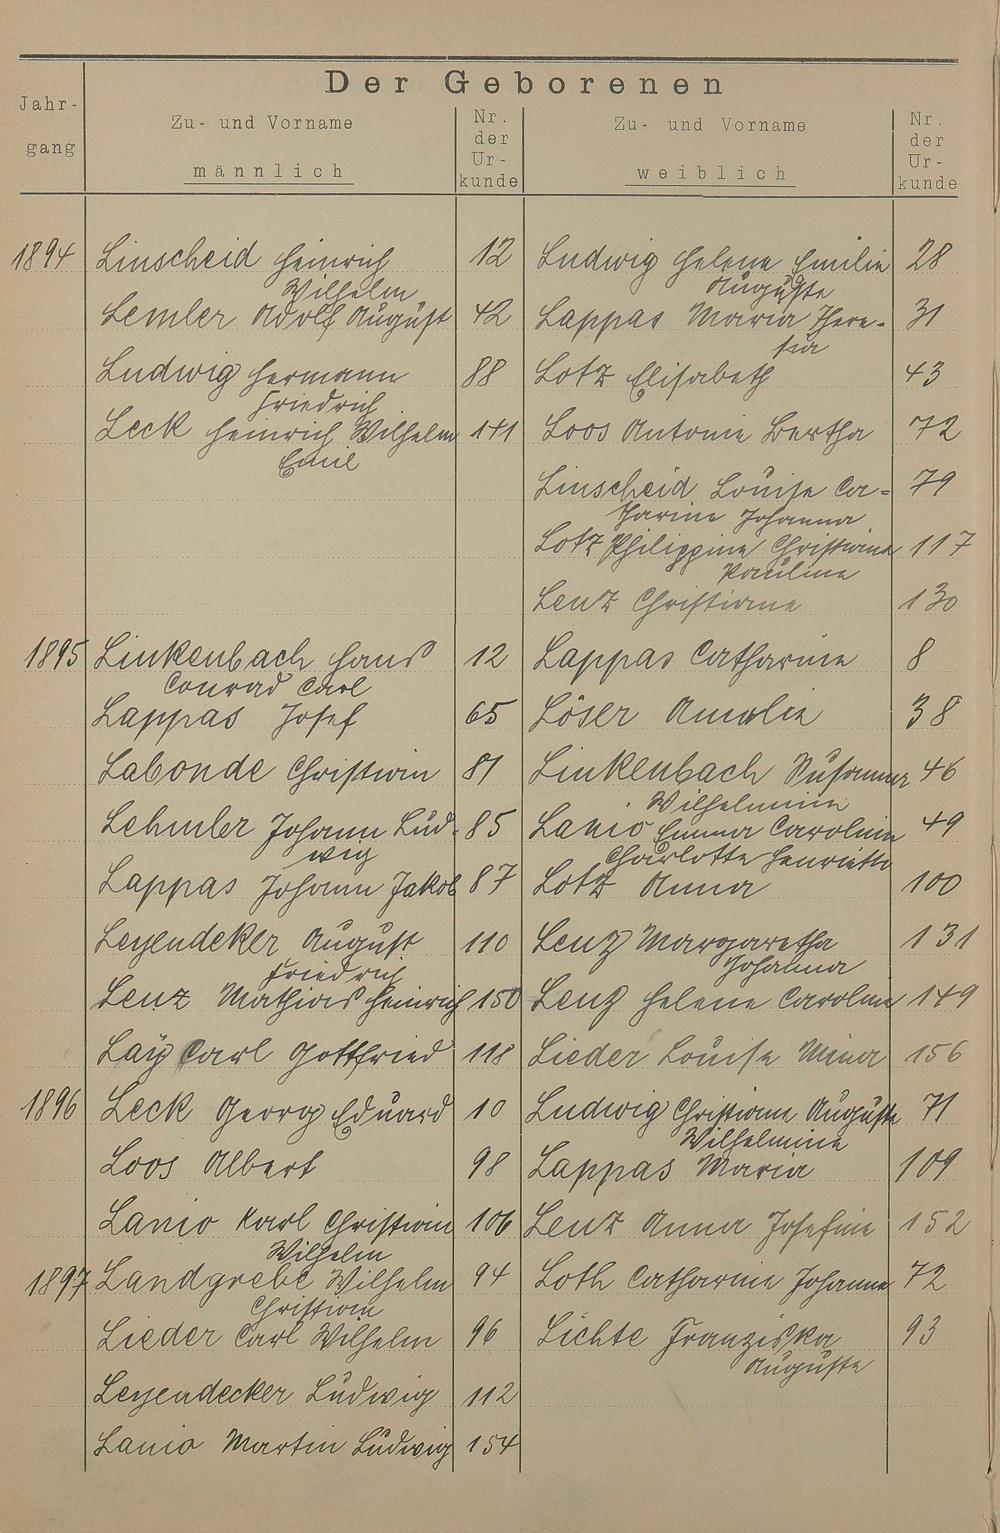 Der Geborenen
Jahr-
gang
Zu- und Vorname
männlich
Nr.
der
Ur-
kunde
Zu- und Vorname
weiblich
Nr.
der
Ur-
kunde
1894 Linscheid Heinrich 12 Ludwig Helene Emilie 28
Wilhelm Auguste
Lemler Adolf August 42 Lappas Maria There- 31
sia
Ludwig Hermann 88 Lotz Elisabeth 43
Friedrich
Leck Heinrich Wilhelm 141 Loos Antonie Bertha 72
Emil
Linscheid Louise Ca- 79
tharine Johanna
Lotz Philippine Christiane 117
Pauline
Lenz Christiane 130
1895 Linkenbach Hans 12 Lappas Catharine 8
Conrad Carl
Lappas Josef 65 Löser Amalie 38
Labonde Christian 81 Linkenbach Susanna 46
Wilhelmine
Lehmler Johann Lud- 85 Lanio Emma Caroline 49
wig Charlotte Henriette
Lappas Johann Jakob 87 Lotz Anna 100
Leyendeker August 110 Lenz Margaretha 131
Friedrich Johanna
Lenz Mathias Heinrich 150 Lenz Helene Caroline 149
Laÿ Carl Gottfried 118 Lieder Louise Mina 156
1896 Leck Georg Eduard 10 Ludwig Christiane Auguste 71
Wilhelmine
Loos Albert 98 Lappas Maria 109
Lanio Karl Christian 106 Lenz Anna Josefine 152
Wilhelm
1897 Landgrebe Wilhelm 94 Loth Catharine Johanna 72
Christian
Lieder Carl Wilhelm 96 Lichte Franziska 93
Auguste
Leyendecker Ludwig 112
Lanio Martin Ludwig 154